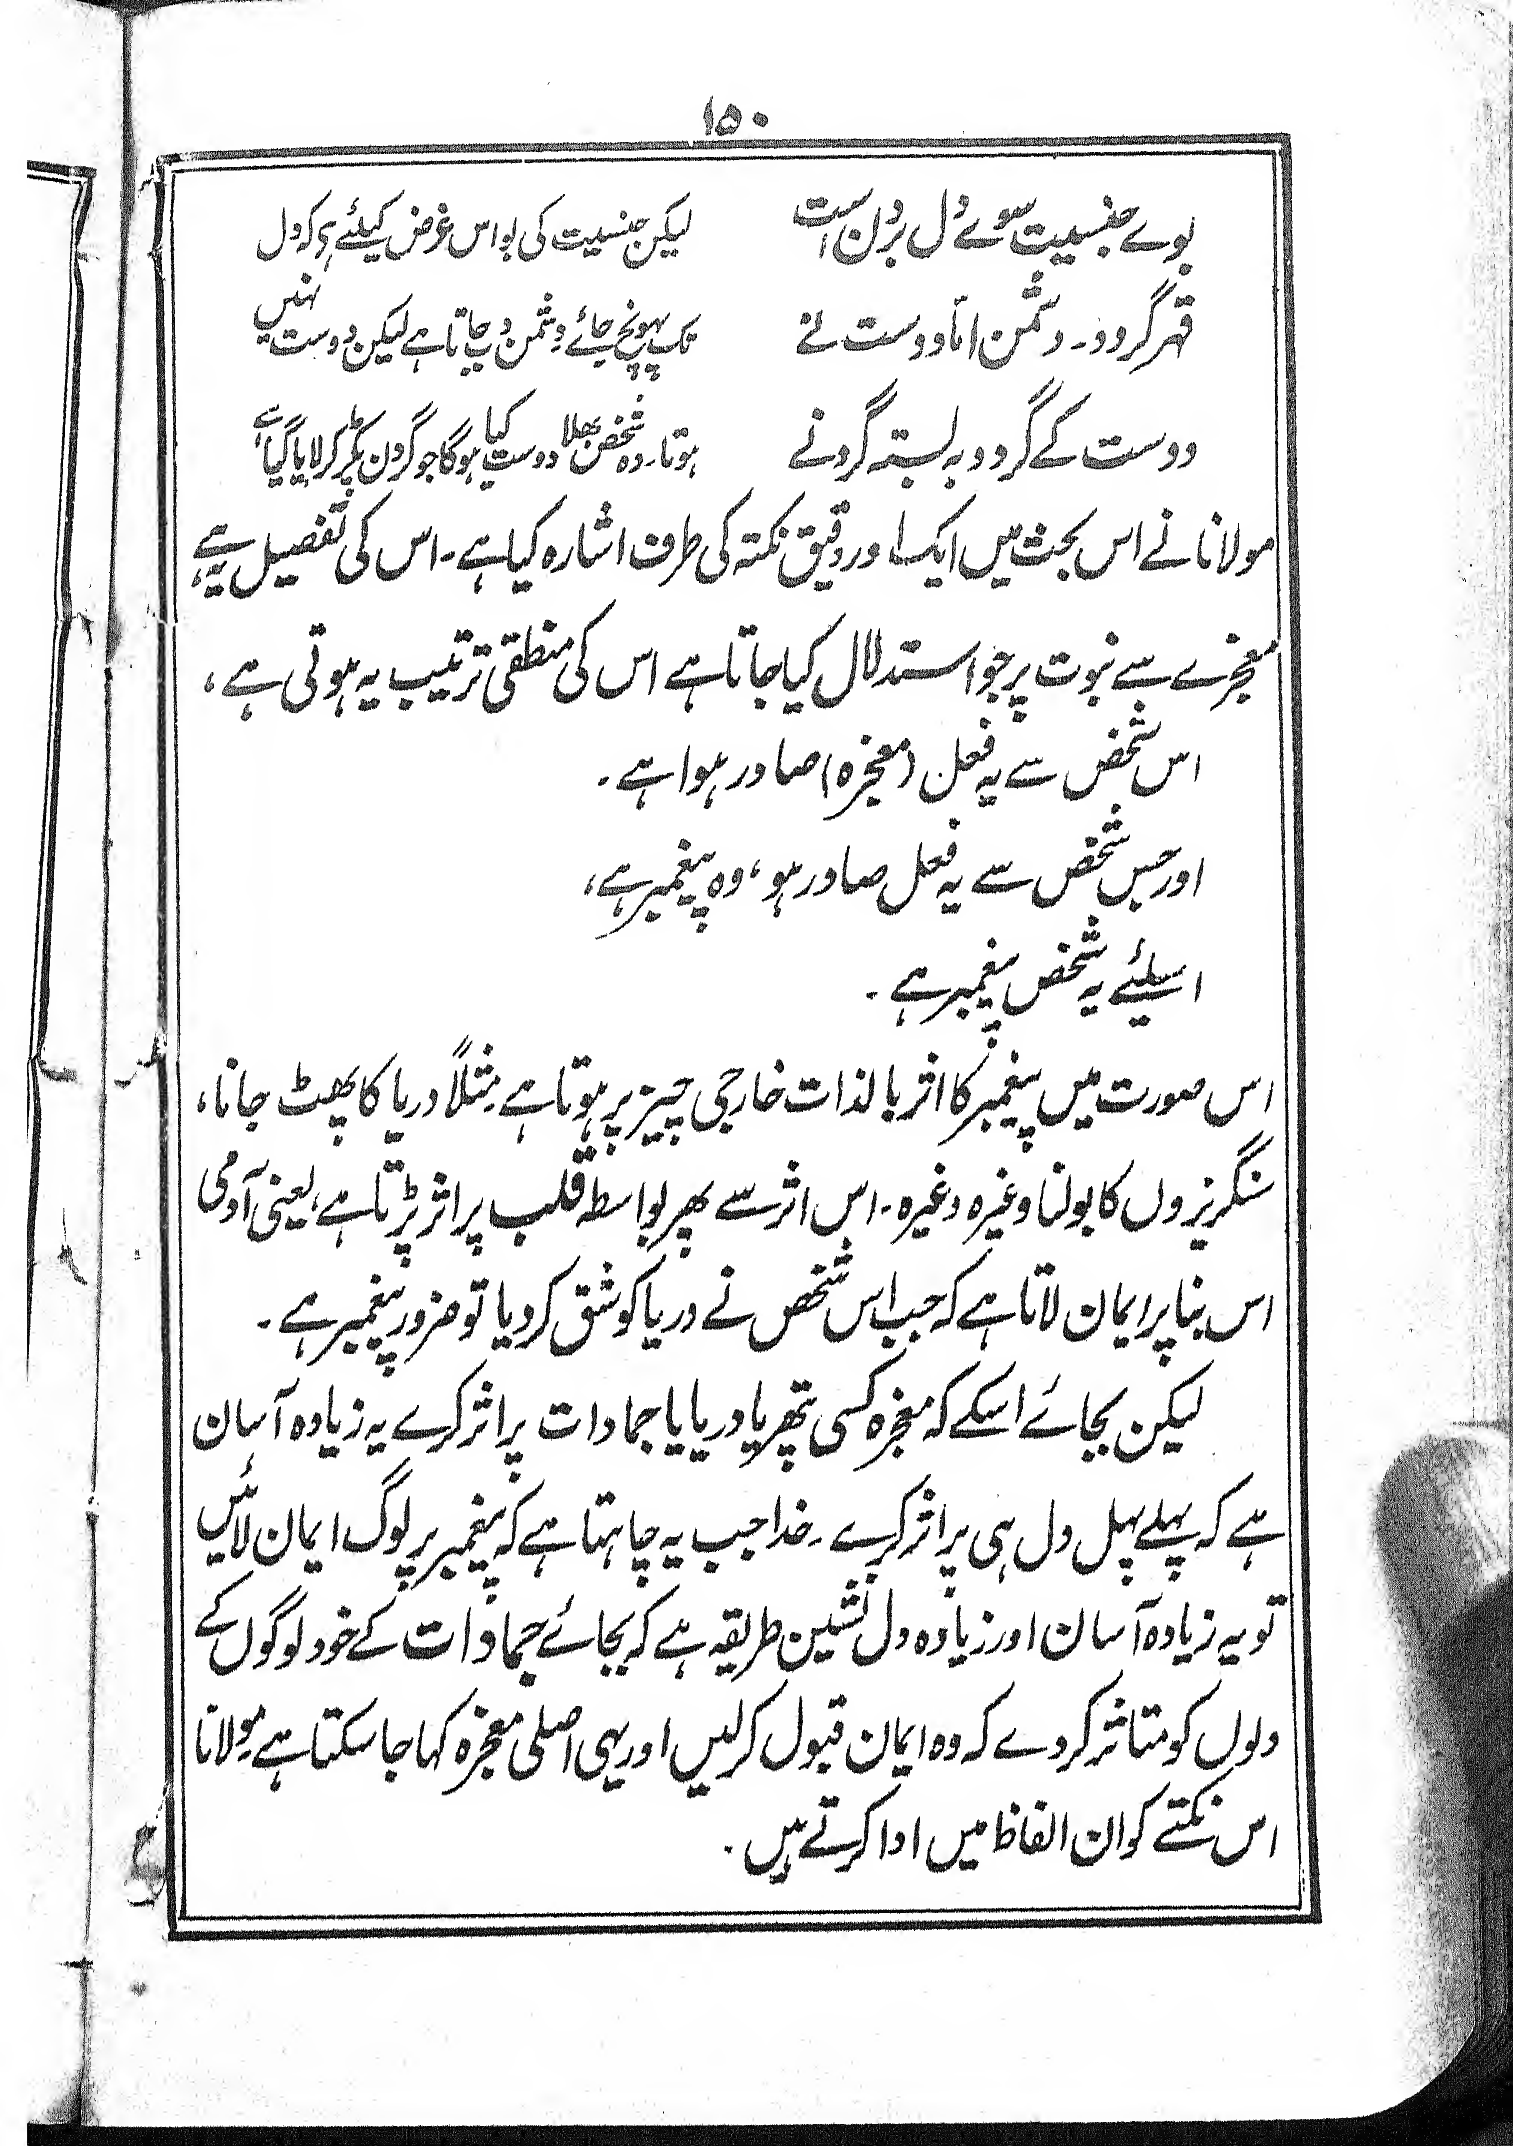 ۱۵۰
بوے جنسیت سوے دل بردن است
لیکن جنسیت کی بو اس غرض کیلئے ہی کہ دل
قہر گردد۔ دشمن امّا دوست نے
تک پہونچ جائے دشمن دب جاتا ہے لیکن دوست نہیں
دوست کے گردد بہ بستہ گردنے
ہوتا۔ وہ شخص بھلا دوست کیا ہوگا جو گردن پکڑ کر لایا گیا ہے
مولانا نے اس بحث میں ایک اور دقیق نکتہ کی طرف اشارہ کیا ہے۔ اس کی تفصیل یہ ہے،
معجزے سے نبوت پر جو استدلال کیا جاتا ہے اس کی منطقی ترتیب یہ ہوتی ہے،
اس شخص سے یہ فعل (معجزہ) صادر ہوا ہے۔
اور جس شخص سے یہ فعل صادر ہو، وہ پیغمبر ہے،
اسلیئے یہ شخص پیغمبر ہے۔
اس صورت میں پیغمبر کا اثر بالذات خارجی چیز پر ہوتا ہے مثلاً دریا کا پھٹ جانا،
سنگریزوں کا بولنا وغیرہ وغیرہ۔ اس اثر سے پھر بواسطہ قلب پر اثر پڑتا ہے، یعنی آدمی
اس بنا پر ایمان لاتا ہے کہ جب اس شخص نے دریا کو شق کر دیا تو ضرور پیغمبر ہے۔
لیکن بجائے اسکے کہ معجزہ کسی پتھر یا دریا یا جمادات پر اثر کرے یہ زیادہ آسان
ہے کہ پہلے پہل دل ہی پر اثر کرے۔ خدا جب یہ چاہتا ہے کہ پیغمبر پر لوگ ایمان لائیں
تو یہ زیادہ آسان اور زیادہ دل نشین طریقہ ہے کہ بجائے جمادات کے خود لوگوں کے
دلوں کو متاثر کر دے کہ وہ ایمان قبول کر لیں اور یہی اصلی معجزہ کہا جا سکتا ہے مولانا
اس نکتے کو ان الفاظ میں ادا کرتے ہیں۔